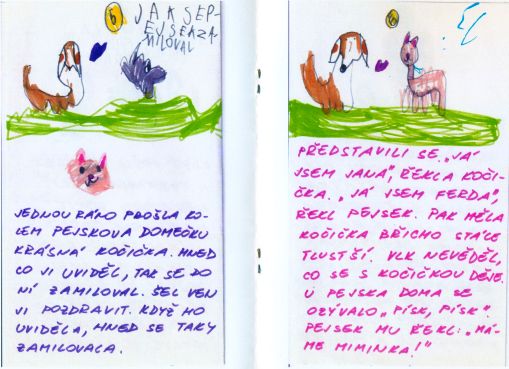 6
JAK SE P-
EJSEK ZA
MILOVAL
JEDNOU RÁNO PROŠLA KO-
LEM PEJSKOVA DOMEČKU
KRÁSNÁ KOČIČKA. HNED
CO JI UVIDĚL, TAK SE DO
NÍ ZAMILOVAL. ŠEL VEN
JI POZDRAVIT. KDYŽ HO
UVIDĚLA, HNED SE TAKY
ZAMILOVALA.
6
PŘEDSTAVILI SE. „JÁ
JSEM JANA", ŘEKLA KOČI-
ČKA. „JÁ JSEM FERDA",
ŘEKL PEJSEK. PAK MĚLA
KOČIČKA BŘICHO STÁLE
TLUSTŠÍ. VLK NEVĚDĚL,
CO SE S KOČIČKOU DĚJE.
U PEJSKA DOMA SE
OZÝVALO „PÍSK, PÍSK".
PEJSEK MU ŘEKL: „MÁ-
ME MIMINKA!"